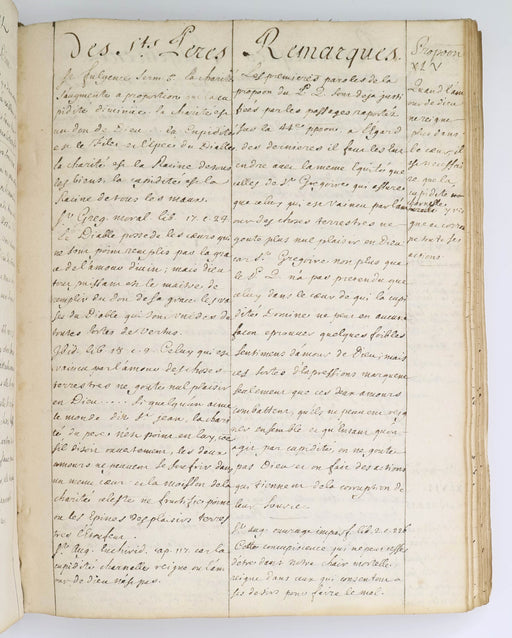 Des Sts Peres
St fulgence Serm 5. la charité
saugmente a proportion que la cu
pidité diminue la charité est
un don de Dieu la Cupidité
est le filet et l'Epée du Diable
la charité est la Racine de tous
les biens, la cupidité est la
Racine de tous les maux.
St Greg moral lib 17. c 24
Le Diable possede les cœurs qui
ne sont point remplis par la gra
ce de l'amour divin; mais dieu
tres puissant est le maitre de
remplir du don de sa grace les va
ses du Diable qui sont vuides de
toutes sortes de vertus.
Ibid. lib 18 c 9. Celuy qui est
vaincu par l'amour des choses
terrestres ne goute nul plaisir
en Dieu Si quelqu'un aime
le monde dit St jean, la chari
té du pere n'est point en luy, ce
sil disoit ouvertement, les deux
amours ne peuvent se souffrir dans
un meme cœur et la moisson de la
charité celeste ne fructifie point
ou les Epines des plaisirs terres
tres l'étouffent.
St Aug. Enchirid. cap. 117. car la
cupidité charnelle reigne ou l'am
our de dieu n'est pas.
Remarques.
Les premieres paroles de la
propoon du P. Q. sont deja justi
fiées par les passages raportés
sur la 44me ppoon. a l'Egard
des dernieres il faut les En
tendre avec la meme Equité que
celles de St Gregoire qui assure
que celuy qui est vaincu par l'am
our des choses terrestres ne
goute plus nul plaisir en Dieu
car St Gregoire non plus que
le P. Q. n'a pas pretendu que
celuy dans le cœur de qui la cupi
dité domine ne peut en aucune
facon eprouver quelques foibles
sentimens d'amour de Dieu; mais
ces sortes d'Expressions marquent
seulement que ces deux amours
combattent, qu'ils ne peuvent reig
ner ensemble et qu'autant qu'on
agit par cupidité, on ne goute
pas Dieu et on fait des actions
qui tiennent de la corruption de
leur source.
St Aug. ouvrage imparf. lib 2. c 226
Cette concupiscence qui ne peut cesser
d'etre dans notre chair mortelle;
reigne dans ceux qui consentent a
ses desirs pour faire le mal.
Propoon
XLV
Quand l'am
our de dieu
ne reigne
plus dans
le cœur, il
est necessai
re que la
cupidité
charnelle y rei
gne et corrom
pe toute ses
actions.